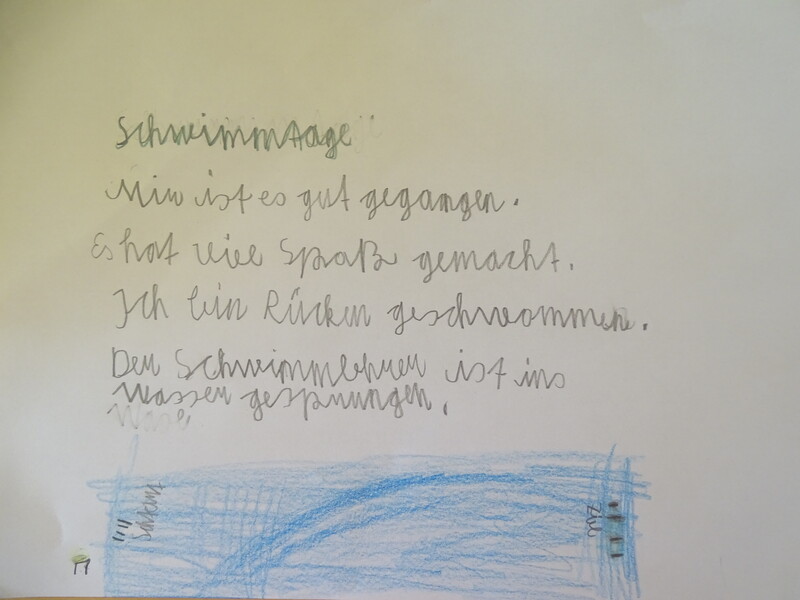 Schwimmtage
Mir ist es gut gegangen.
Es hat viel Spaß gemacht.
Ich bin Rücken geschwommen.
Der Schwimmlehrer ist ins
Wasser gesprungen.
Ziel